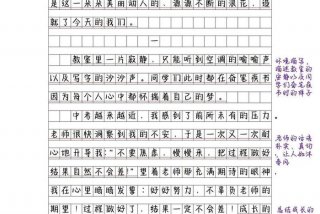 是这一朵朵美丽动人的、源源不断的浪花，造
就了今天的我们。
一
教室里一片寂静，只能听到空调的嗡嗡声
以及写字的沙沙声。同学们此时都在奋笔疾书
因为每个人心中都怀揣着自己的梦。
中考越来越近，我感到了前所未有的压力。
老师很快洞察到我的不安，于是一次又一次耐
心地开导我：“不要焦虑，慢慢来，把过程做好
结果自然不会差！”望着老师那充满期许的眼神，
我在心里暗暗发誓：好好努力，不辜负老师的
期望！过程做好了，结果一定不会差！成长的
环境描写，
描述教室的
安静以及同
学们奋笔在
书时的样子
老师的话语
朴实，真切
让人如沐
春风
总结成长的